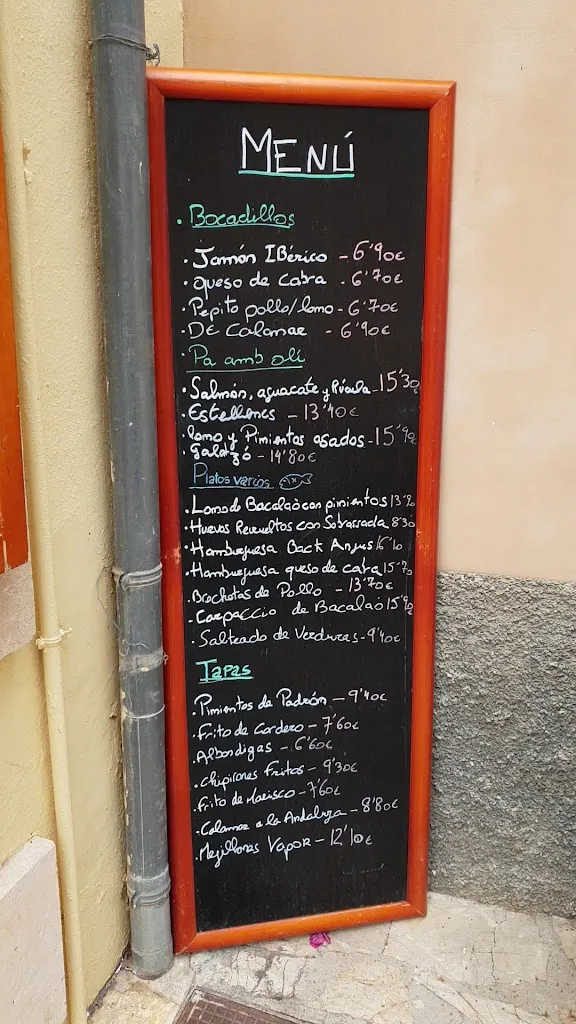 MENÚ
. Bocadillos
. Jamón IBérico - 6'90€
. queso de cabra . 6'70€
. Pepito pollo/lomo - 6'70€
. DE Calamar - 6'90€
. Pa amb oli
. Salmón, aguacate y Rúcula - 15'30
. Estellenes - 13'40€
. lomo y Pimientos asados - 15'90
. galdzó - 14'80€
Platos varios
. Lomo de Bacalao con pimientos 13'90
. Huevos Revueltos con Sobrassada 8'30
. Hamburguesa Back Angus 16'10
. Hamburguesa queso de cabra 15'70
. Brochetas de Pollo - 13'70€
. Carpaccio de Bacalao 15'90
. Salteado de Verduras - 9'40€
Tapas
. Pimientos de Padrón - 9'40€
. Frito de Cordero - 7'60€
. Albondigas - 6'60€
. chipirones Fritos - 9'30€
. Frito de Marisco - 7'60€
. Calamar a la Andaluza - 8'80€
. Mejillones Vapor - 12'10€